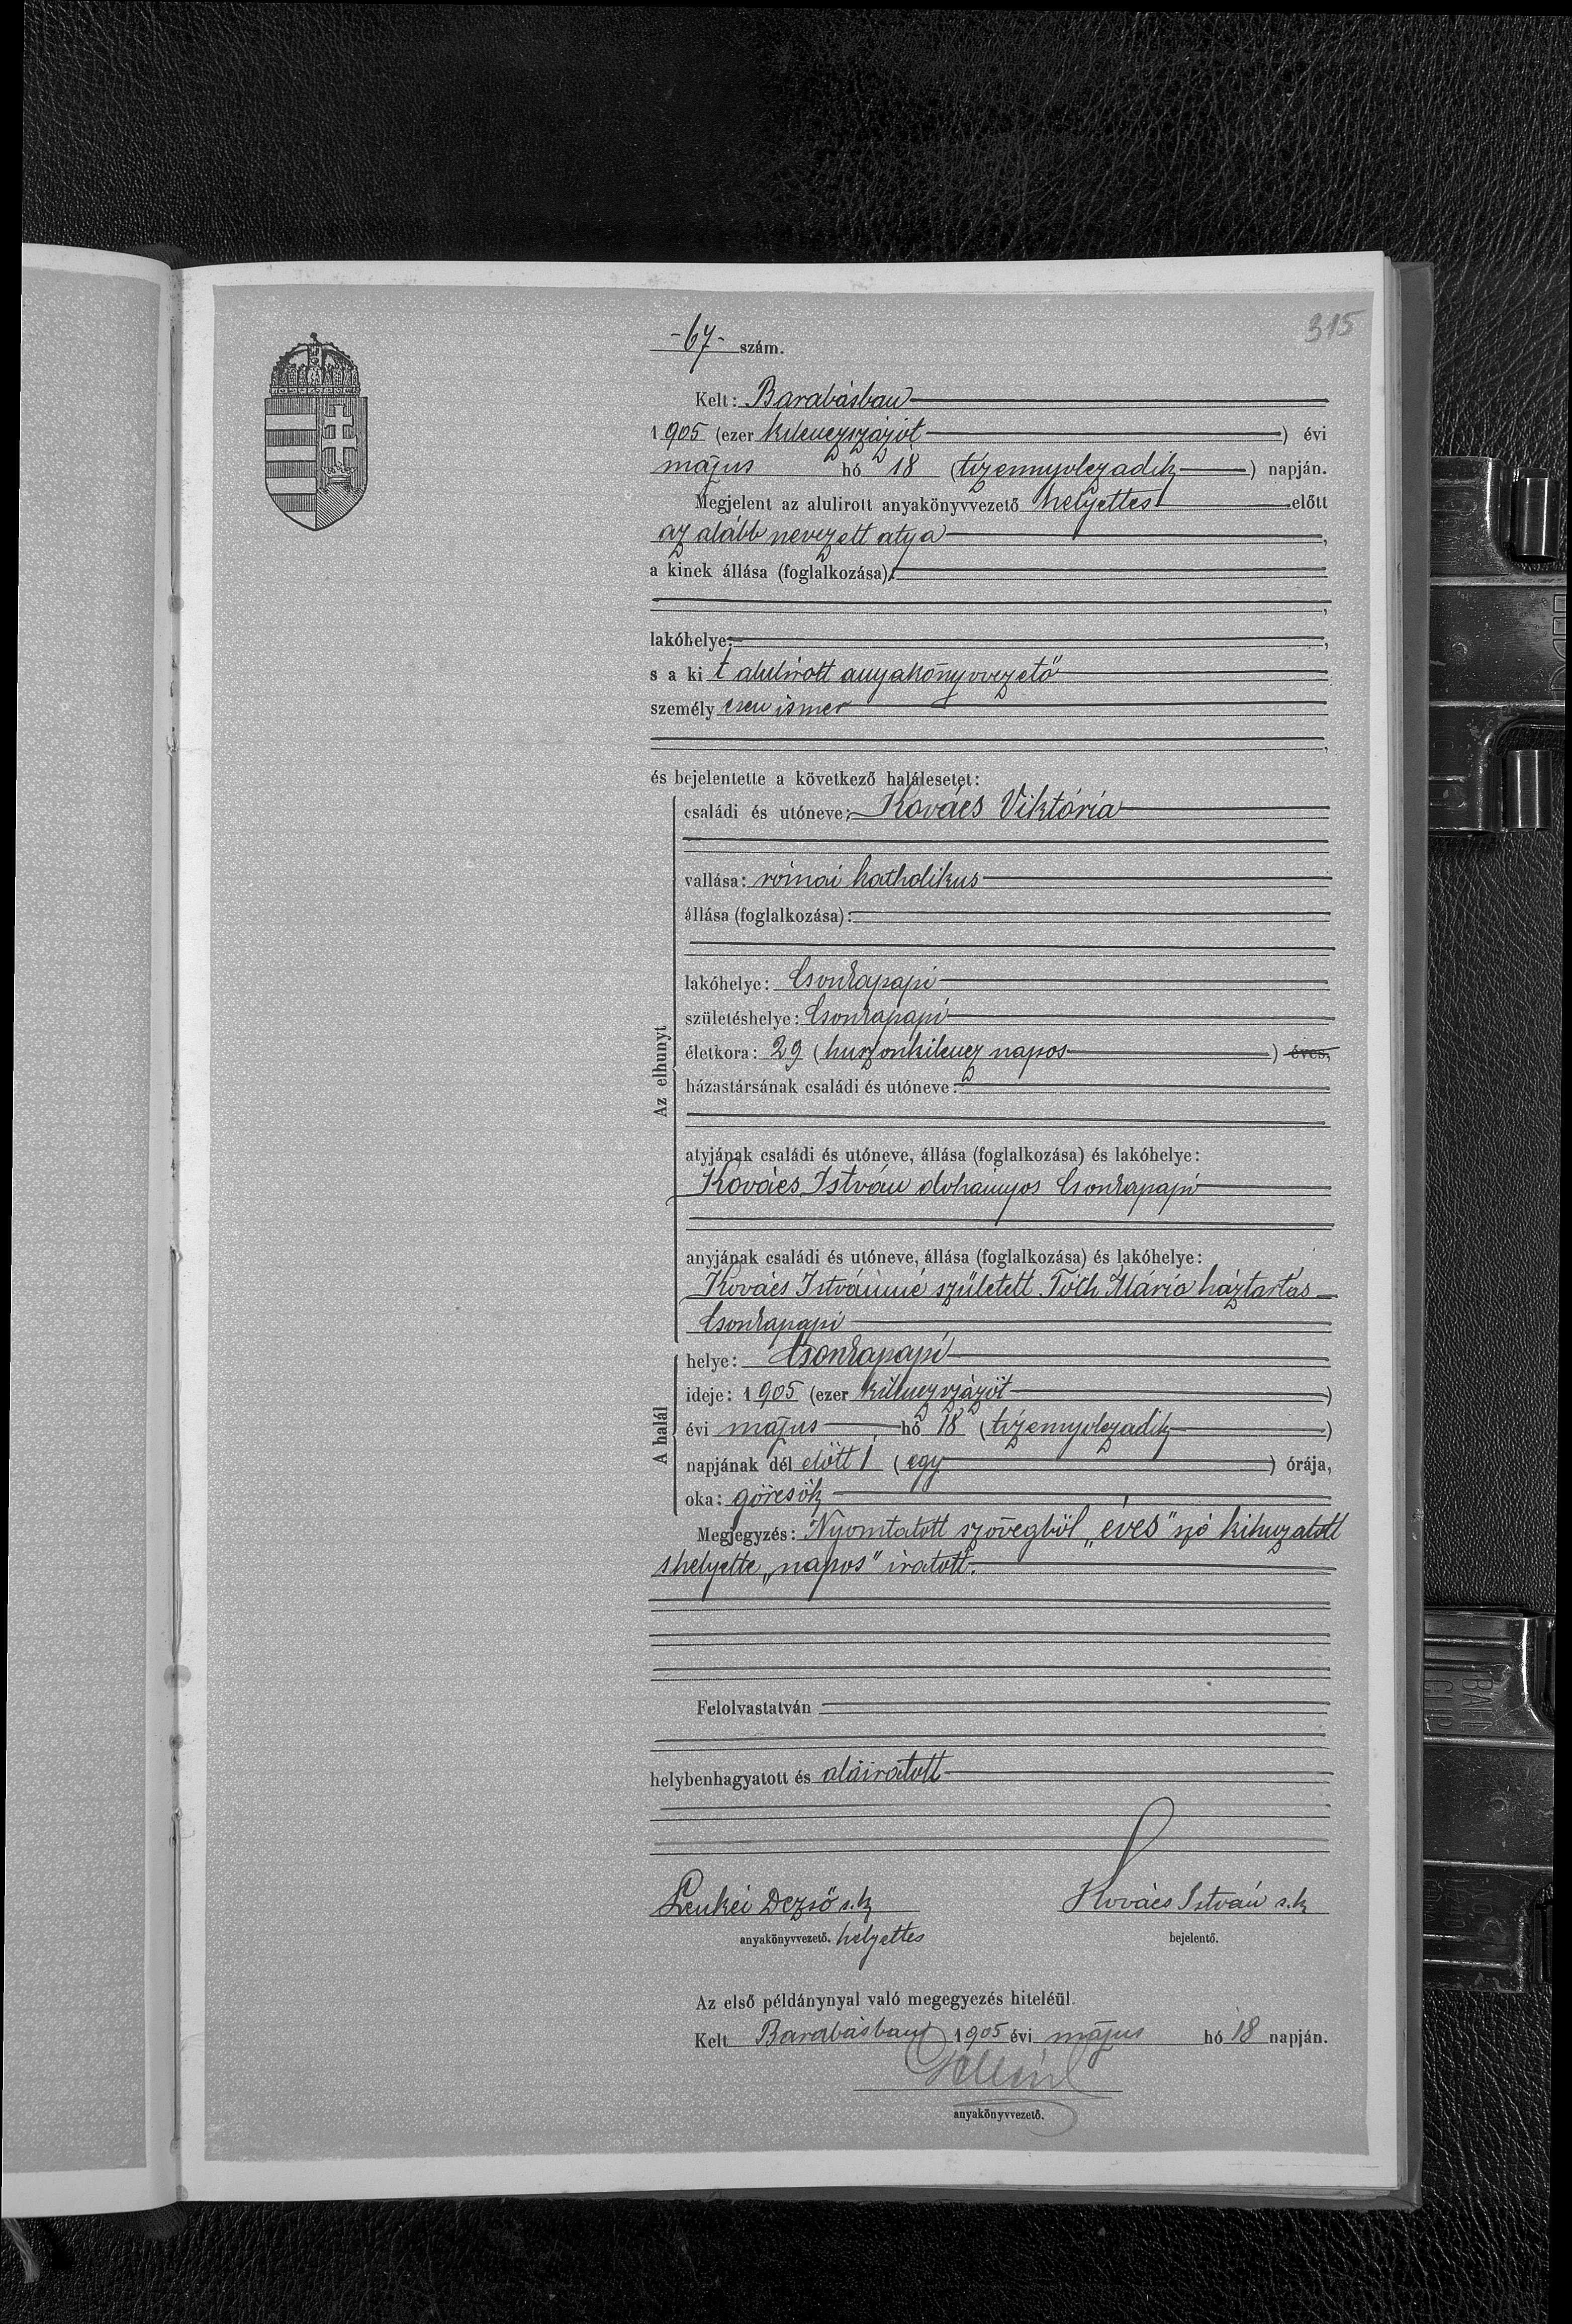 315
-67- szám.
Kelt: Barabásban
1905 (ezer kilenczszázöt) évi
május hó 18 (tizennyolczadik) napján.
Megjelent az alulirott anyakönyvvezető helyettes előtt
az alább nevezett atya,
a kinek állása (foglalkozása):
lakóhelye:
s a ki t alulírott anyakönyvvezető
személy esen ismer
és bejelentette a következő halálesetet:
Az elhunyt
családi és utóneve: Kovács Viktória
vallása: római katholikus
állása (foglalkozása):
lakóhelye: Csonkapapi
születéshelye: Csonkapapi
életkora: 29 (huszonkilencz napos) éves,
házastársának családi és utóneve:
atyjának családi és utóneve, állása (foglalkozása) és lakóhelye:
Kovács István dohányos Csonkapapi
anyjának családi és utóneve, állása (foglalkozása) és lakóhelye:
Kovács Istvánné született Tóth Mária háztartás
Csonkapapi
A halál
helye: Csonkapapi
ideje: 1905 (ezer kilenczszázöt)
évi május hó 18 (tizennyolczadik)
napjának dél előtt 1 (egy) órája,
oka: görcsök
Megjegyzés: Nyomtatott szövegből „éves" szó kihuzatott
s helyette „napos" iratott.
Felolvastatván
helybenhagyatott és aláiratott
Lenkei Dezső s.k. Kovács István s.k.
anyakönyvvezető. helyettes bejelentő.
Az első példánynyal való megegyezés hiteléül.
Kelt Barabásban 1905 évi május hó 18 napján.
anyakönyvvezető.